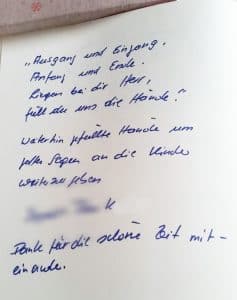 „Ausgang und Eingang,
Anfang und Ende
liegen bei dir Herr,
füll du uns die Hände."
Weiterhin gefüllte Hände um
vollen Segen an die Kinder
weiterzugeben
Danke für die schöne Zeit mit-
einander.